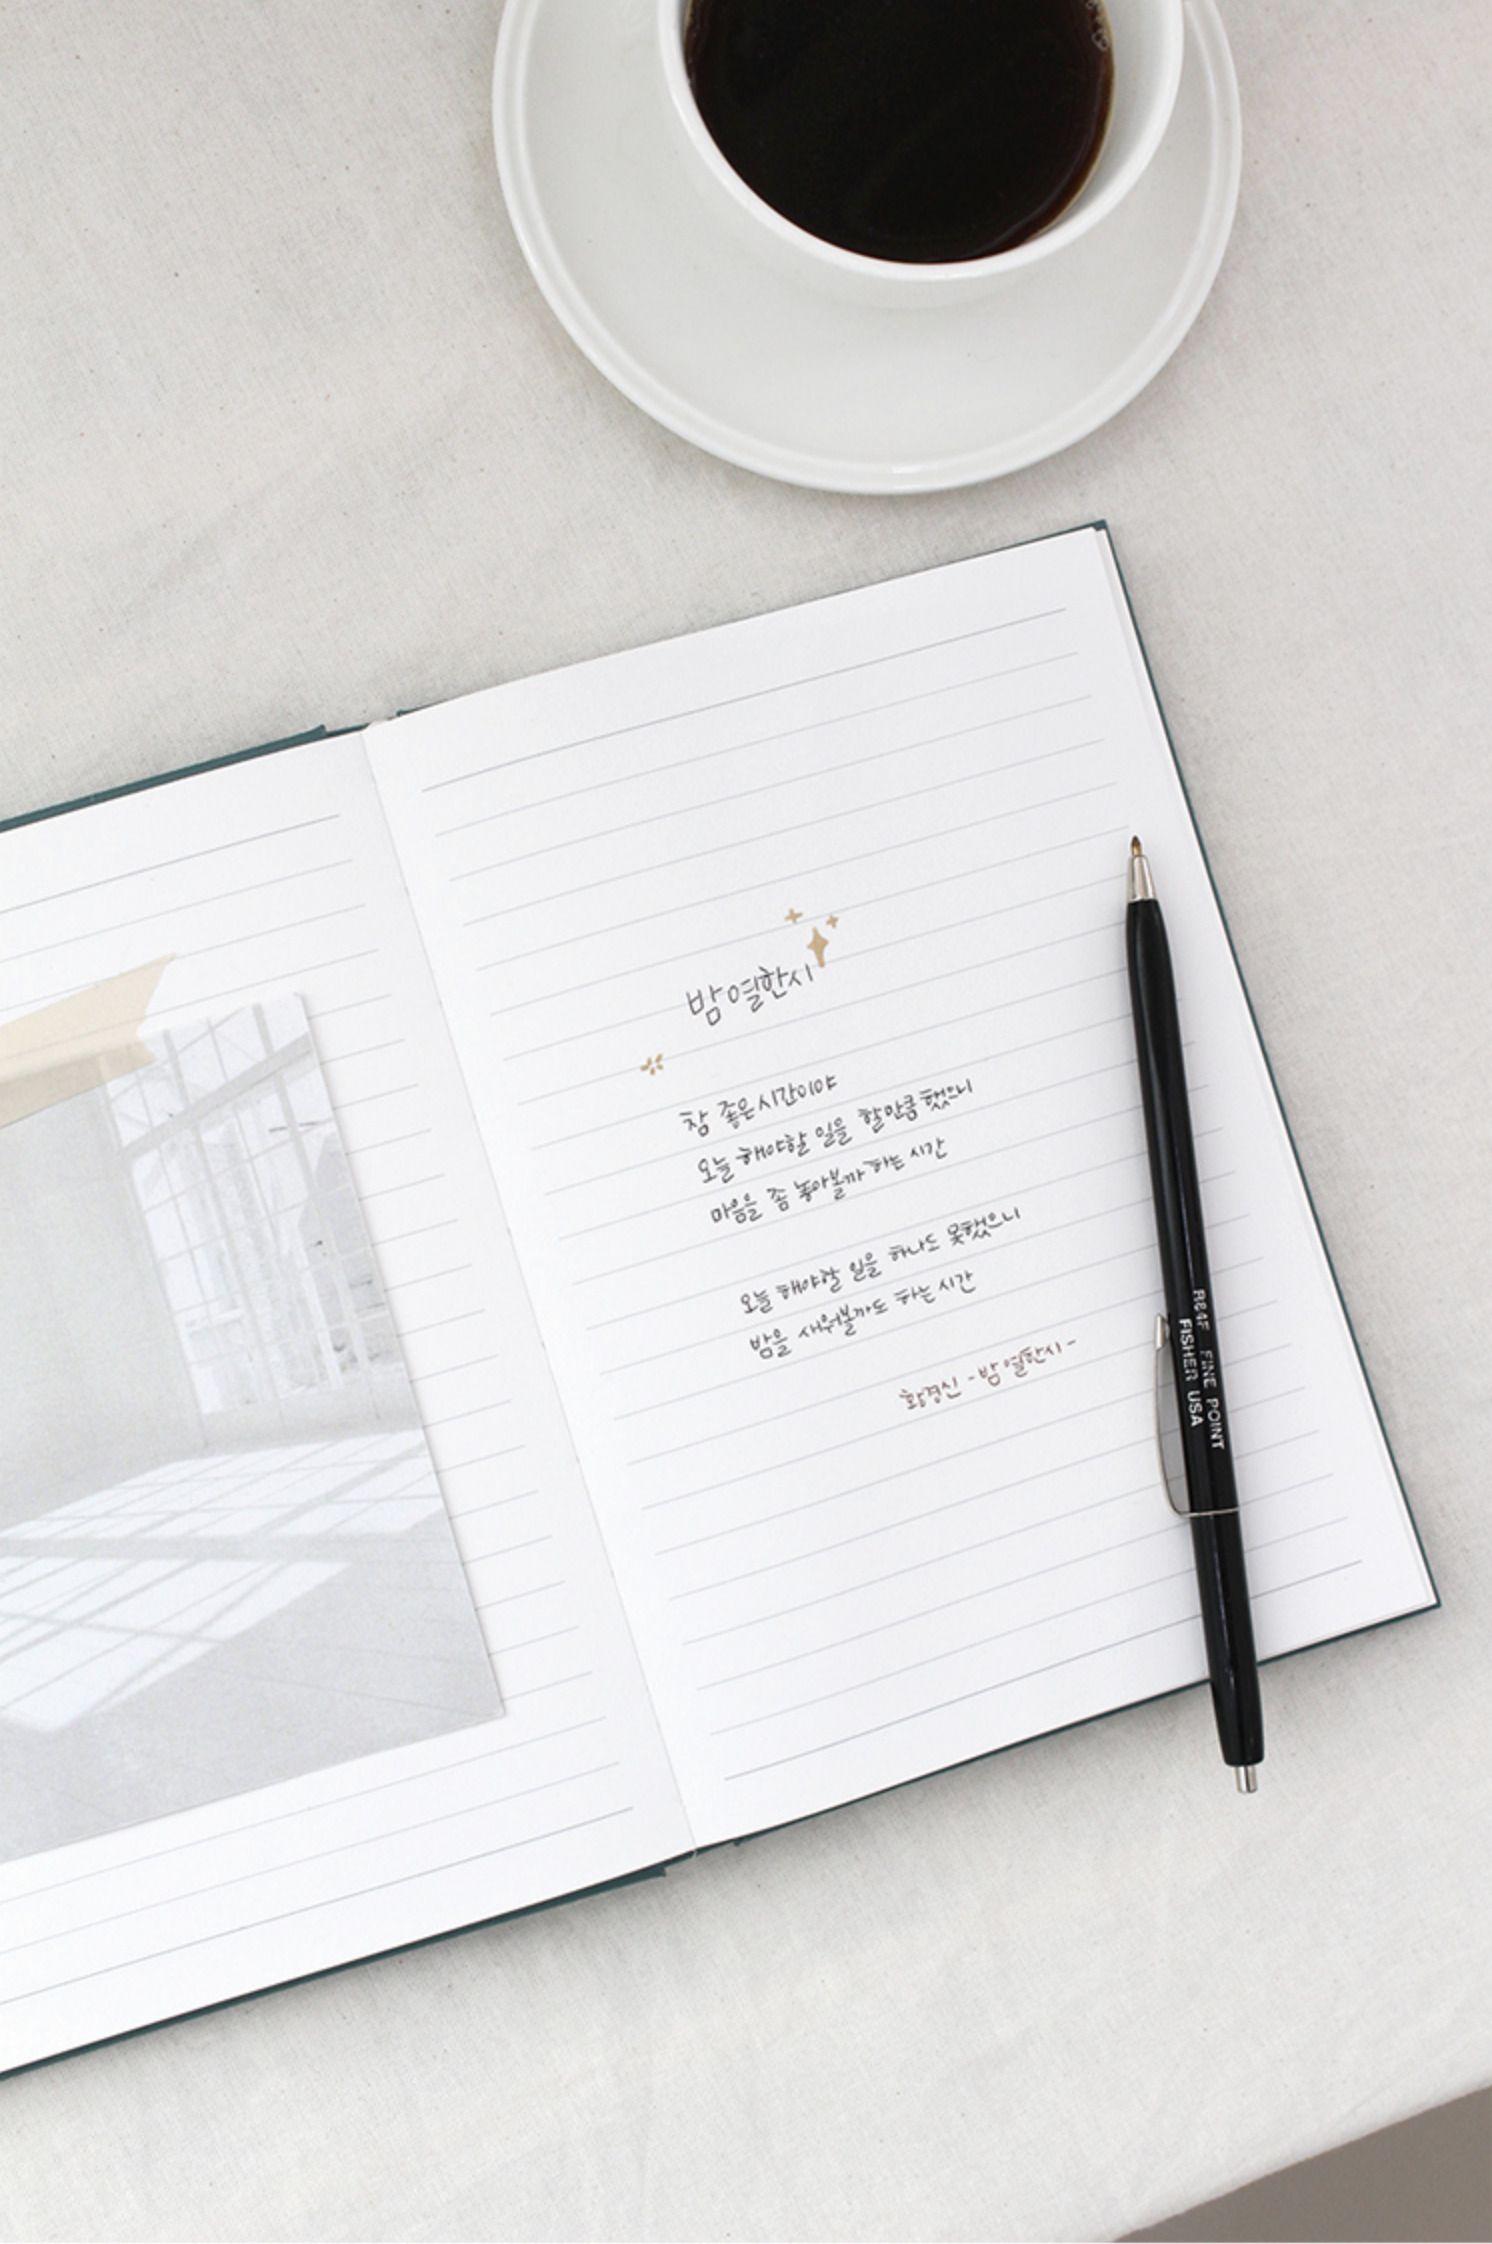 밤 열한시
참 좋은 시간이야
오늘 해야할 일을 할만큼 했으니
마음을 좀 놓아볼까 하는 시간
오늘 해야할 일을 하나도 못했으니
밤을 새워볼까도 하는 시간
황경신 - 밤 열한시 -
R84F FINE POINT
FISHER USA